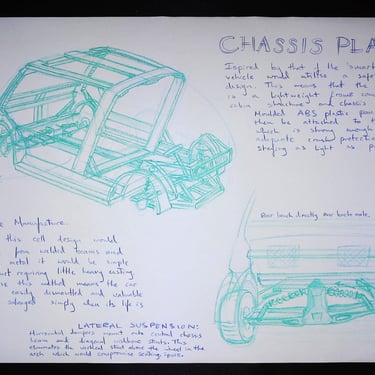 CHASSIS PLA
Ispired by that if the 'smart
vehicle would utilise a safe
design. This means that the
is a lightweight
cabin structure and chassis
Moulded ABS plastic
then be attached to
which is strong enough
adequate crash protection
staying as light as
Manufacture.
this cell design would
from welded beams and
metal it would be simple
not requiring little heavy casting
this method means the car
easily dismantled and valuable
salvaged simply when its life is
Rear bench directly over
LATERAL SUSPENSION:
Horizontal dampers mount into central chassis
beam and diagonal wishbone struts. This
eliminates the vertical strut above the wheel in the
arch which would compromise seating space.